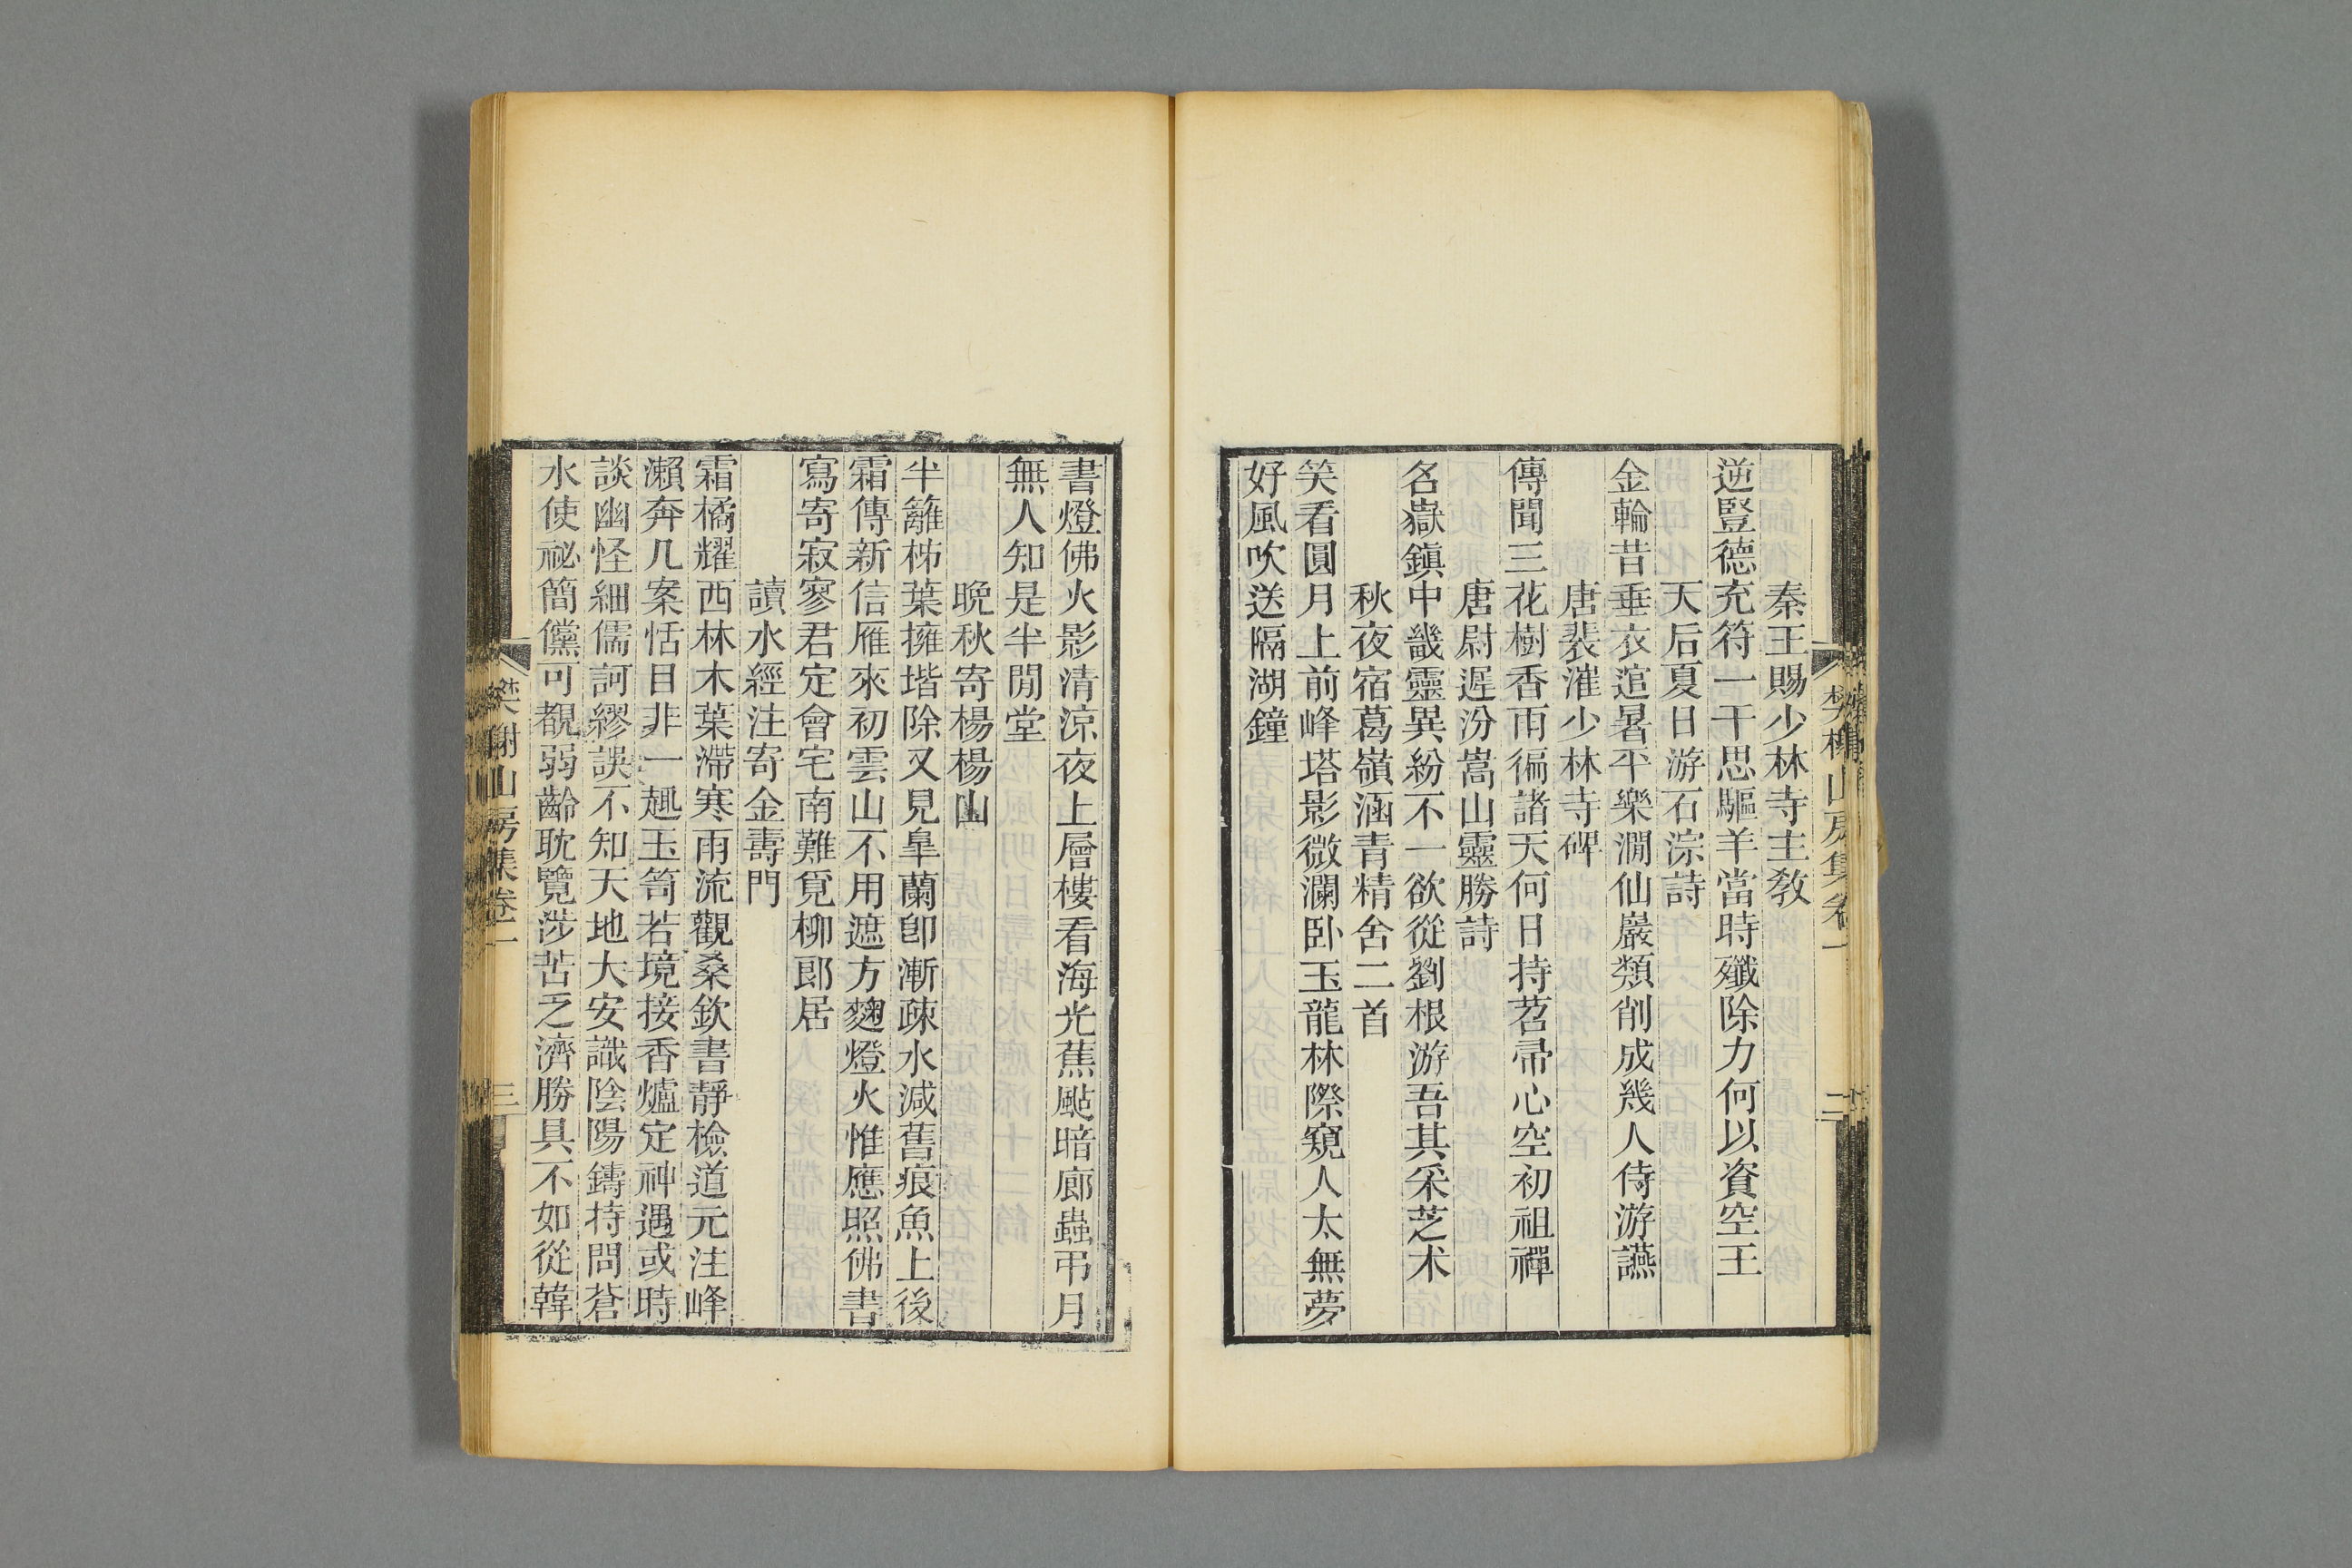 樊榭山房集卷一
二
秦王賜少林寺主教
逆豎德充符一干思驅羊當時殲除力何以資空王
天后夏日游石淙詩
金輪昔垂衣逭暑平樂澗仙巖類削成幾人侍游讌
唐裴漼少林寺碑
傳聞三花樹香雨徧諸天何日持苕帚心空初祖禪
唐尉遲汾嵩山靈勝詩
名嶽鎮中畿靈異紛不一欲從劉根游吾其采芝术
秋夜宿葛嶺涵青精舍二首
笑看圓月上前峰塔影微瀾卧玉龍林際窺人太無夢
好風吹送隔湖鐘
書燈佛火影清涼夜上層樓看海光蕉颭暗廊蟲弔月
無人知是半閒堂
晚秋寄楊楊山
半籬柹葉擁堦除又見皐蘭卽漸疎水減舊痕魚上後
霜傳新信雁來初雲山不用遮方麴燈火惟應照佛書
寫寄寂寥君定會宅南難覓柳郎居
讀水經注寄金壽門
霜橘耀西林木葉滯寒雨流觀桑欽書靜檢道元注峰
瀨奔几案恬目非一趣玉笥若境接香爐定神遇或時
談幽怪細儒訶繆誤不知天地大安識陰陽鑄持問蒼
水使祕簡儻可覩弱齡耽覽涉苦乏濟勝具不如從韓
樊榭山房集卷一
三